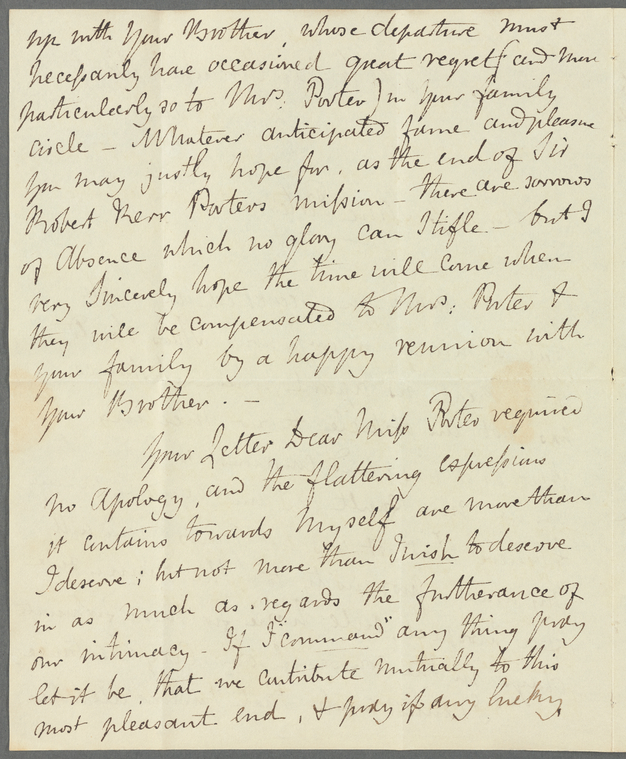 up with your Brother, whose departure must
necessarily have occasioned great regret (and more
particularly so to Mrs: Porter) in your family
circle - Whatever anticipated fame and pleasure
you may justly hope for, as the end of Sir
Robert Kerr Porters mission - there are sorrows
of Absence which no glory can Stifle - but I
very Sincerely hope the time will come when
they will be compensated to Mrs: Porter &
your family by a happy reunion with
your Brother. -
Your Letter Dear Miss Porter required
no Apology, and the flattering expressions
it contains towards myself are more than
I deserve; but not more than I wish to deserve
in as much as regards the furtherance of
our intimacy - If I "command" any thing pray
let it be, that we contribute mutually to this
most pleasant end, & pray if any lucky